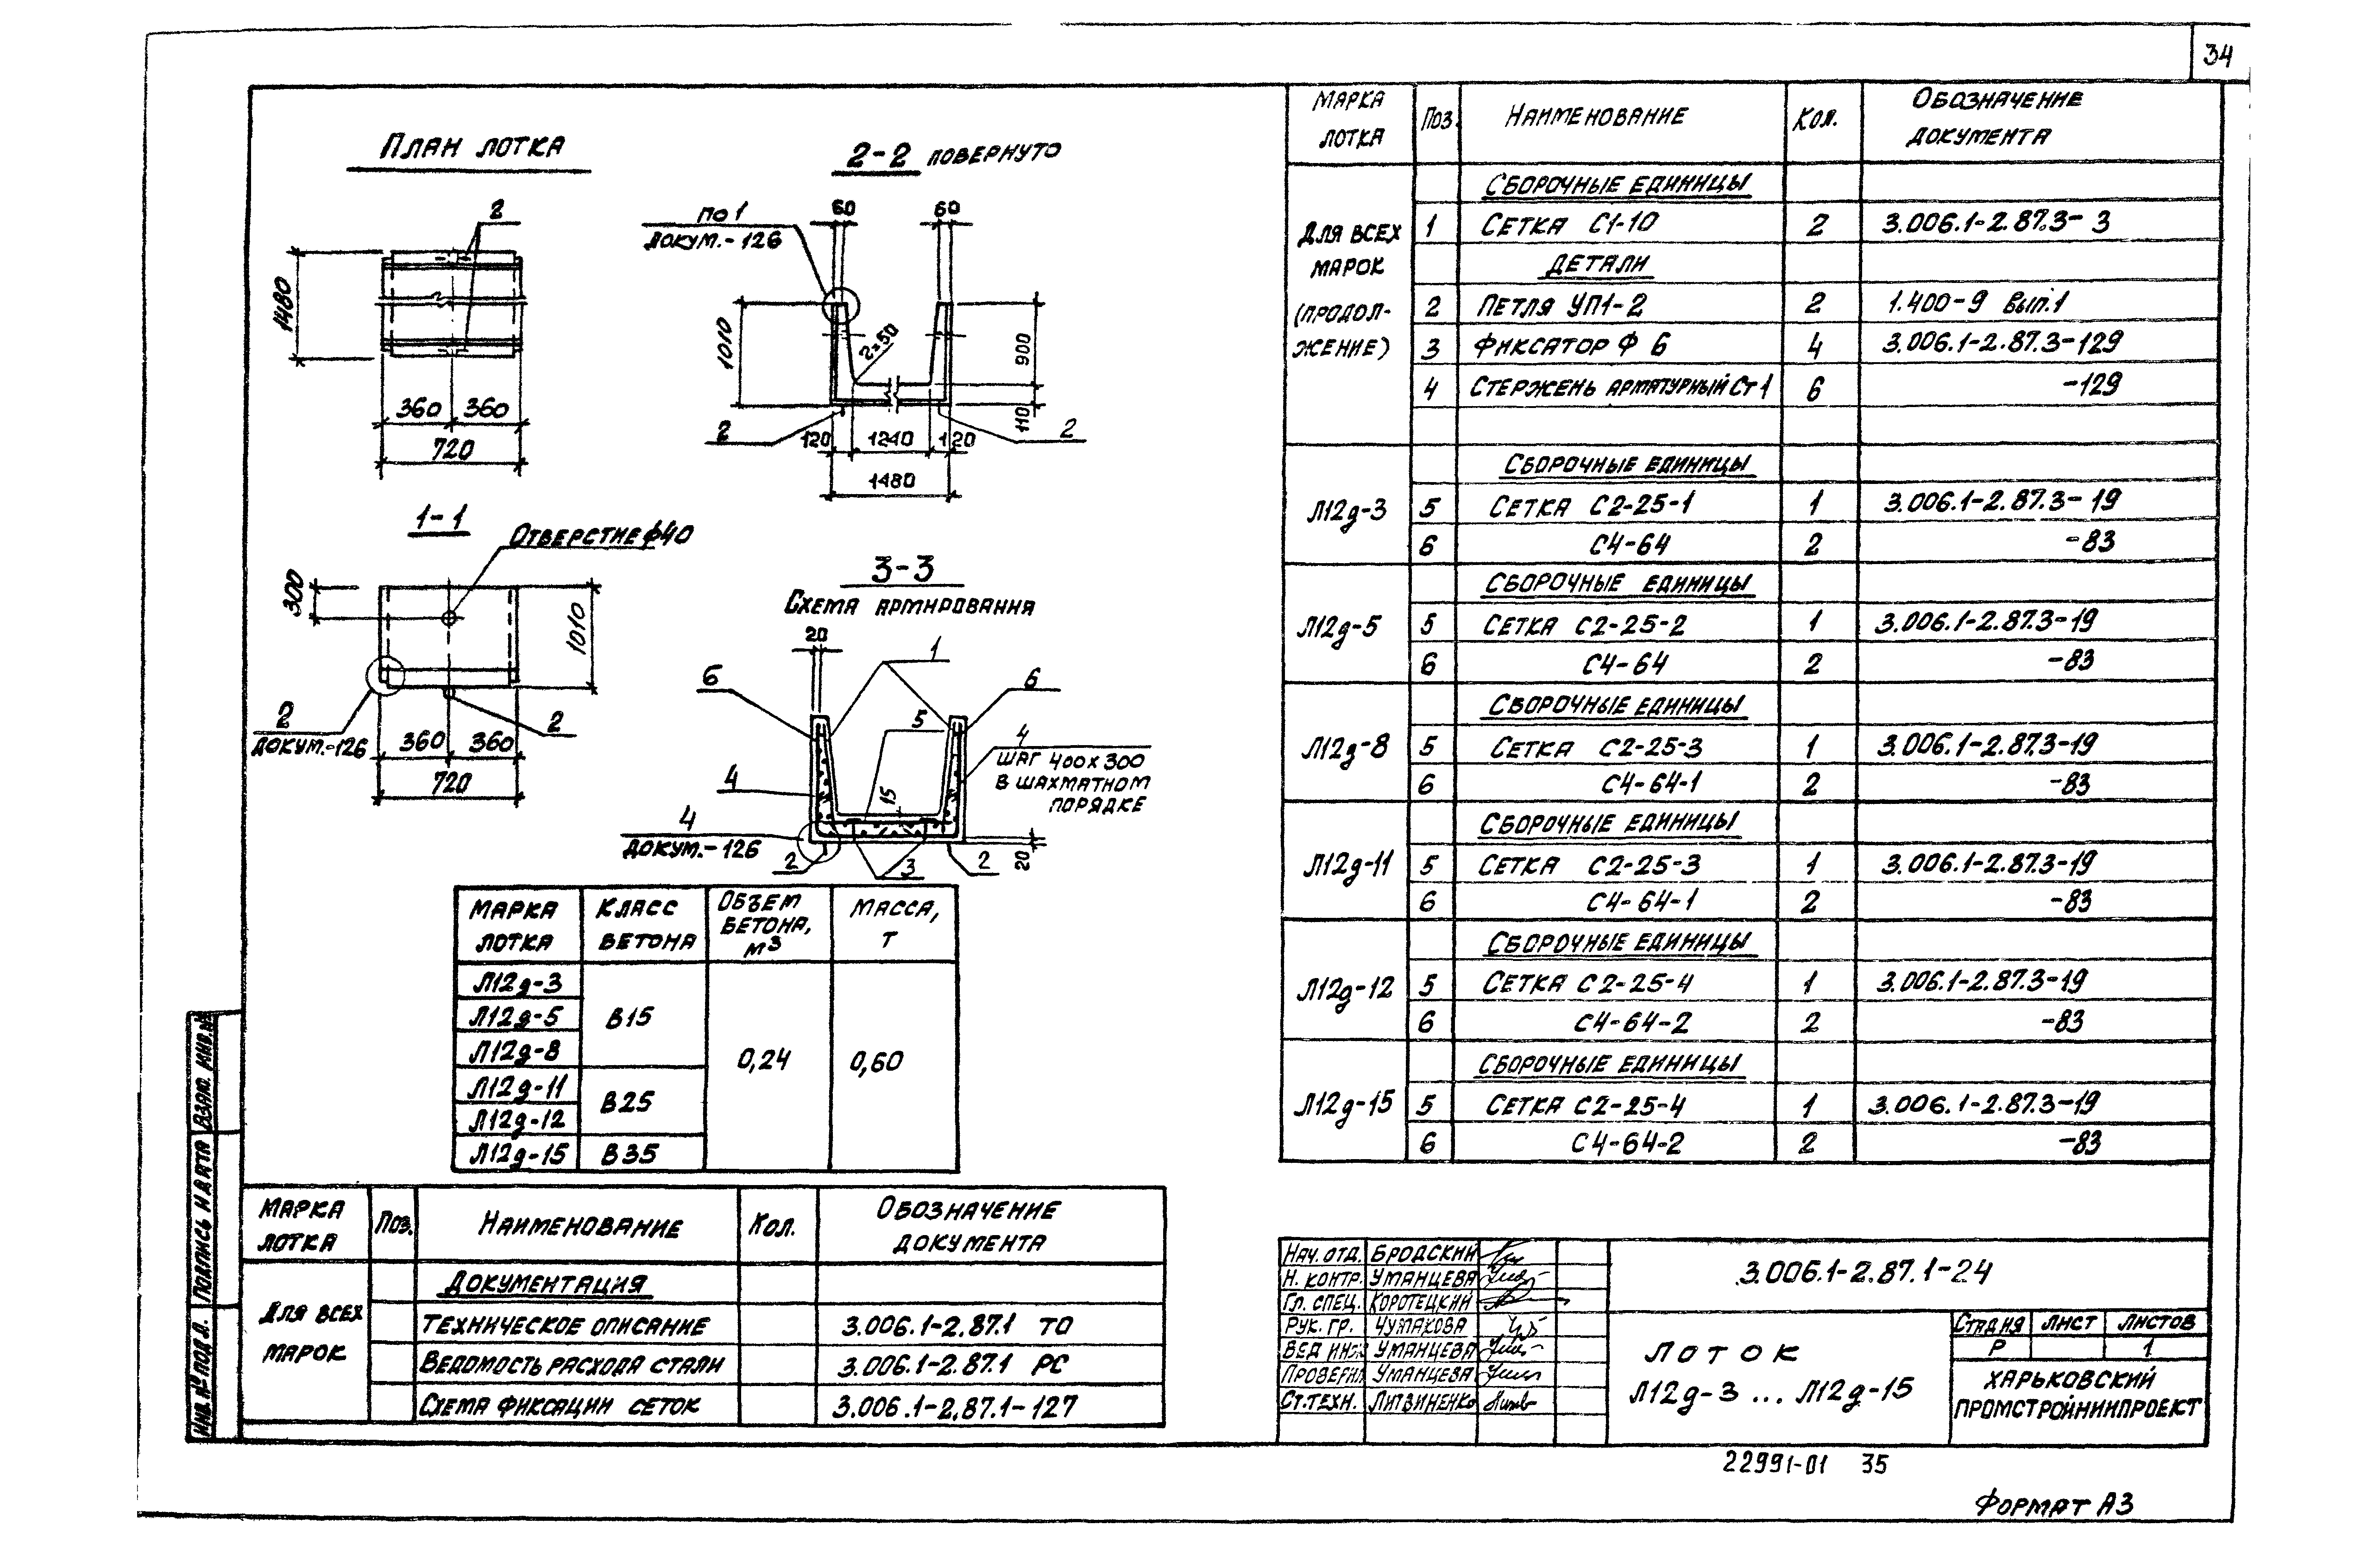 34
План лотка
2
1480
360 360
720
2-2 повернуто
по 1
докум.-126
60 60
1010
2×50
900
110
2 2
120 1240 120
1480
1-1
Отверстие ф40
300
1010
2
докум.-126
2
360 360
720
3-3
Схема армирования
20
1
6 6
5
4
шаг 400х300
в шахматном
порядке
4
15
4
докум.-126
2 3 2
20
Марка лотка Класс бетона Объем бетона, м3 Масса, т
Л12д-3
Л12д-5 В15
Л12д-8
0,24 0,60
Л12д-11
В25
Л12д-12
Л12д-15 В35
Марка лотка Поз. Наименование Кол. Обозначение документа
Для всех марок
Документация
Техническое описание 3.006.1-2.87.1 ТО
Ведомость расхода стали 3.006.1-2.87.1 РС
Схема фиксации сеток 3.006.1-2.87.1-127
Марка лотка Поз. Наименование Кол. Обозначение документа
Для всех марок (продолжение)
Сборочные единицы
1 Сетка С1-10 2 3.006.1-2.87.3-3
Детали
2 Петля УП1-2 2 1.400-9 вып.1
3 Фиксатор Ф 6 4 3.006.1-2.87.3-129
4 Стержень арматурный Ст1 6 -129
Сборочные единицы
Л12д-3 5 Сетка С2-25-1 1 3.006.1-2.87.3-19
6 С4-64 2 -83
Сборочные единицы
Л12д-5 5 Сетка С2-25-2 1 3.006.1-2.87.3-19
6 С4-64 2 -83
Сборочные единицы
Л12д-8 5 Сетка С2-25-3 1 3.006.1-2.87.3-19
6 С4-64-1 2 -83
Сборочные единицы
Л12д-11 5 Сетка С2-25-3 1 3.006.1-2.87.3-19
6 С4-64-1 2 -83
Сборочные единицы
Л12д-12 5 Сетка С2-25-4 1 3.006.1-2.87.3-19
6 С4-64-2 2 -83
Сборочные единицы
Л12д-15 5 Сетка С2-25-4 1 3.006.1-2.87.3-19
6 С4-64-2 2 -83
Нач. отд. Бродский
Н. контр. Уманцева
Гл. спец. Коротецкий
Рук. гр. Чумакова
Вед инж. Уманцева
Проверил Уманцева
Ст.техн. Литвиненко
3.006.1-2.87.1-24
Лоток
Л12д-3 ... Л12д-15
Стадия Лист Листов
Р 1
Харьковский
Промстройниипроект
Инв. № подл. Подпись и дата Взам. инв. №
22991-01 35
Формат А3